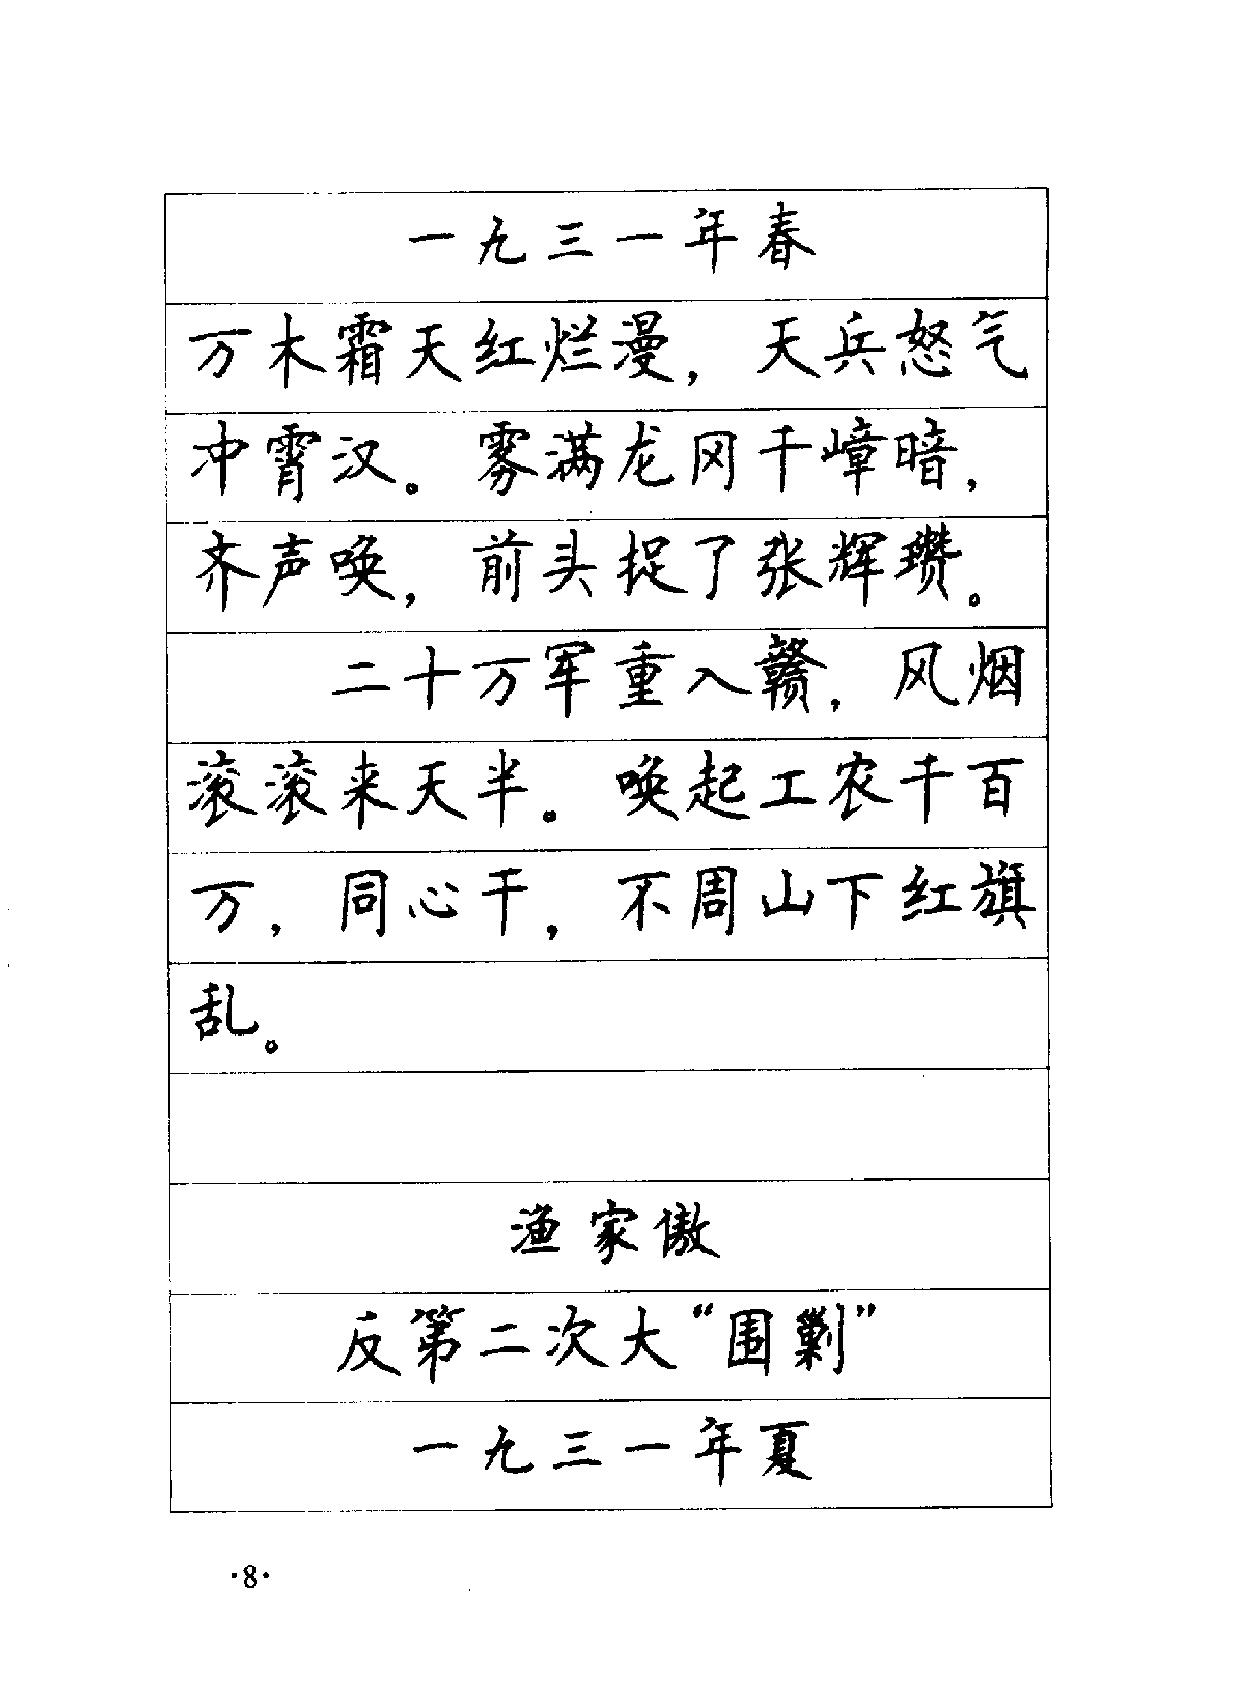 一九三一年春
万木霜天红烂漫，天兵怒气
冲霄汉。雾满龙冈千嶂暗，
齐声唤，前头捉了张辉瓒。
二十万军重入赣，风烟
滚滚来天半。唤起工农千百
万，同心干，不周山下红旗
乱。
渔家傲
反第二次大“围剿”
一九三一年夏
·8·